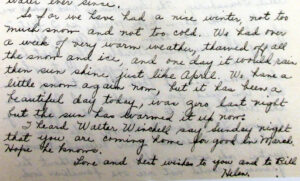 water ever since.
So far we have had a nice winter, not too
much snow and not too cold. We had over
a week of very warm weather, thawed off all
the snow and ice, and one day it would rain
then sun shine just like April. We have a
little snow again now, but it has been a
beautiful day today, was zero last night
but the sun has warmed it up now.
I heard Walter Winchell say Sunday night
that you are coming home for good in March,
Hope he knows.
Love and best wishes to you and to Bill
Helen.